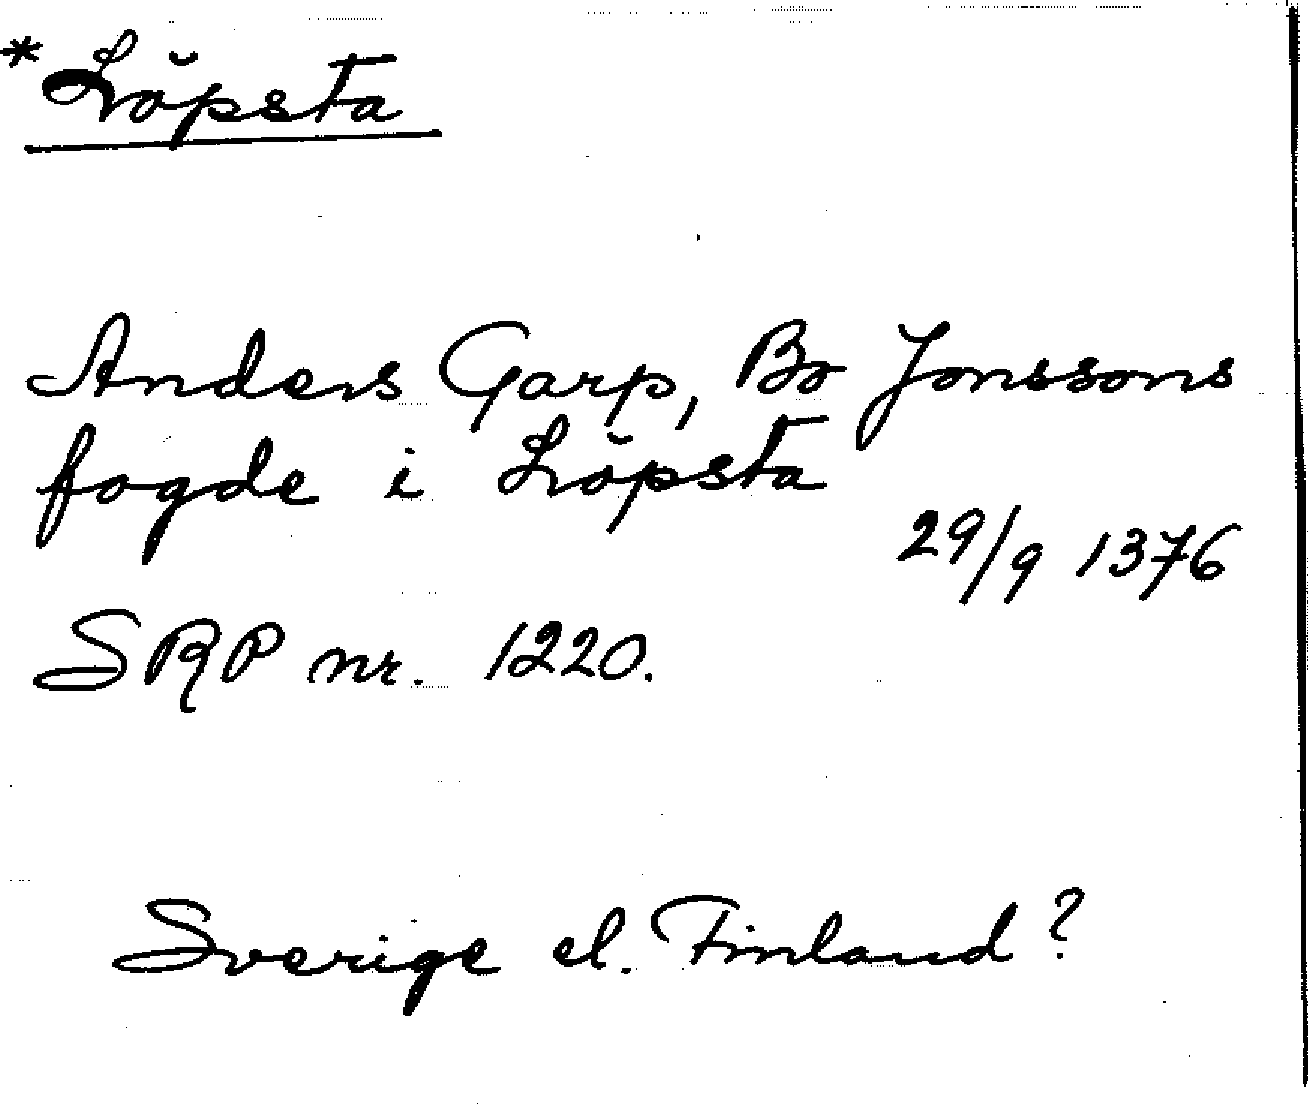 * Löpsta
Anders Garp, Bo Jonssons
fogde i Löpsta
29/9 1376
SRP nr. 1220.
Sverige el. Finland?